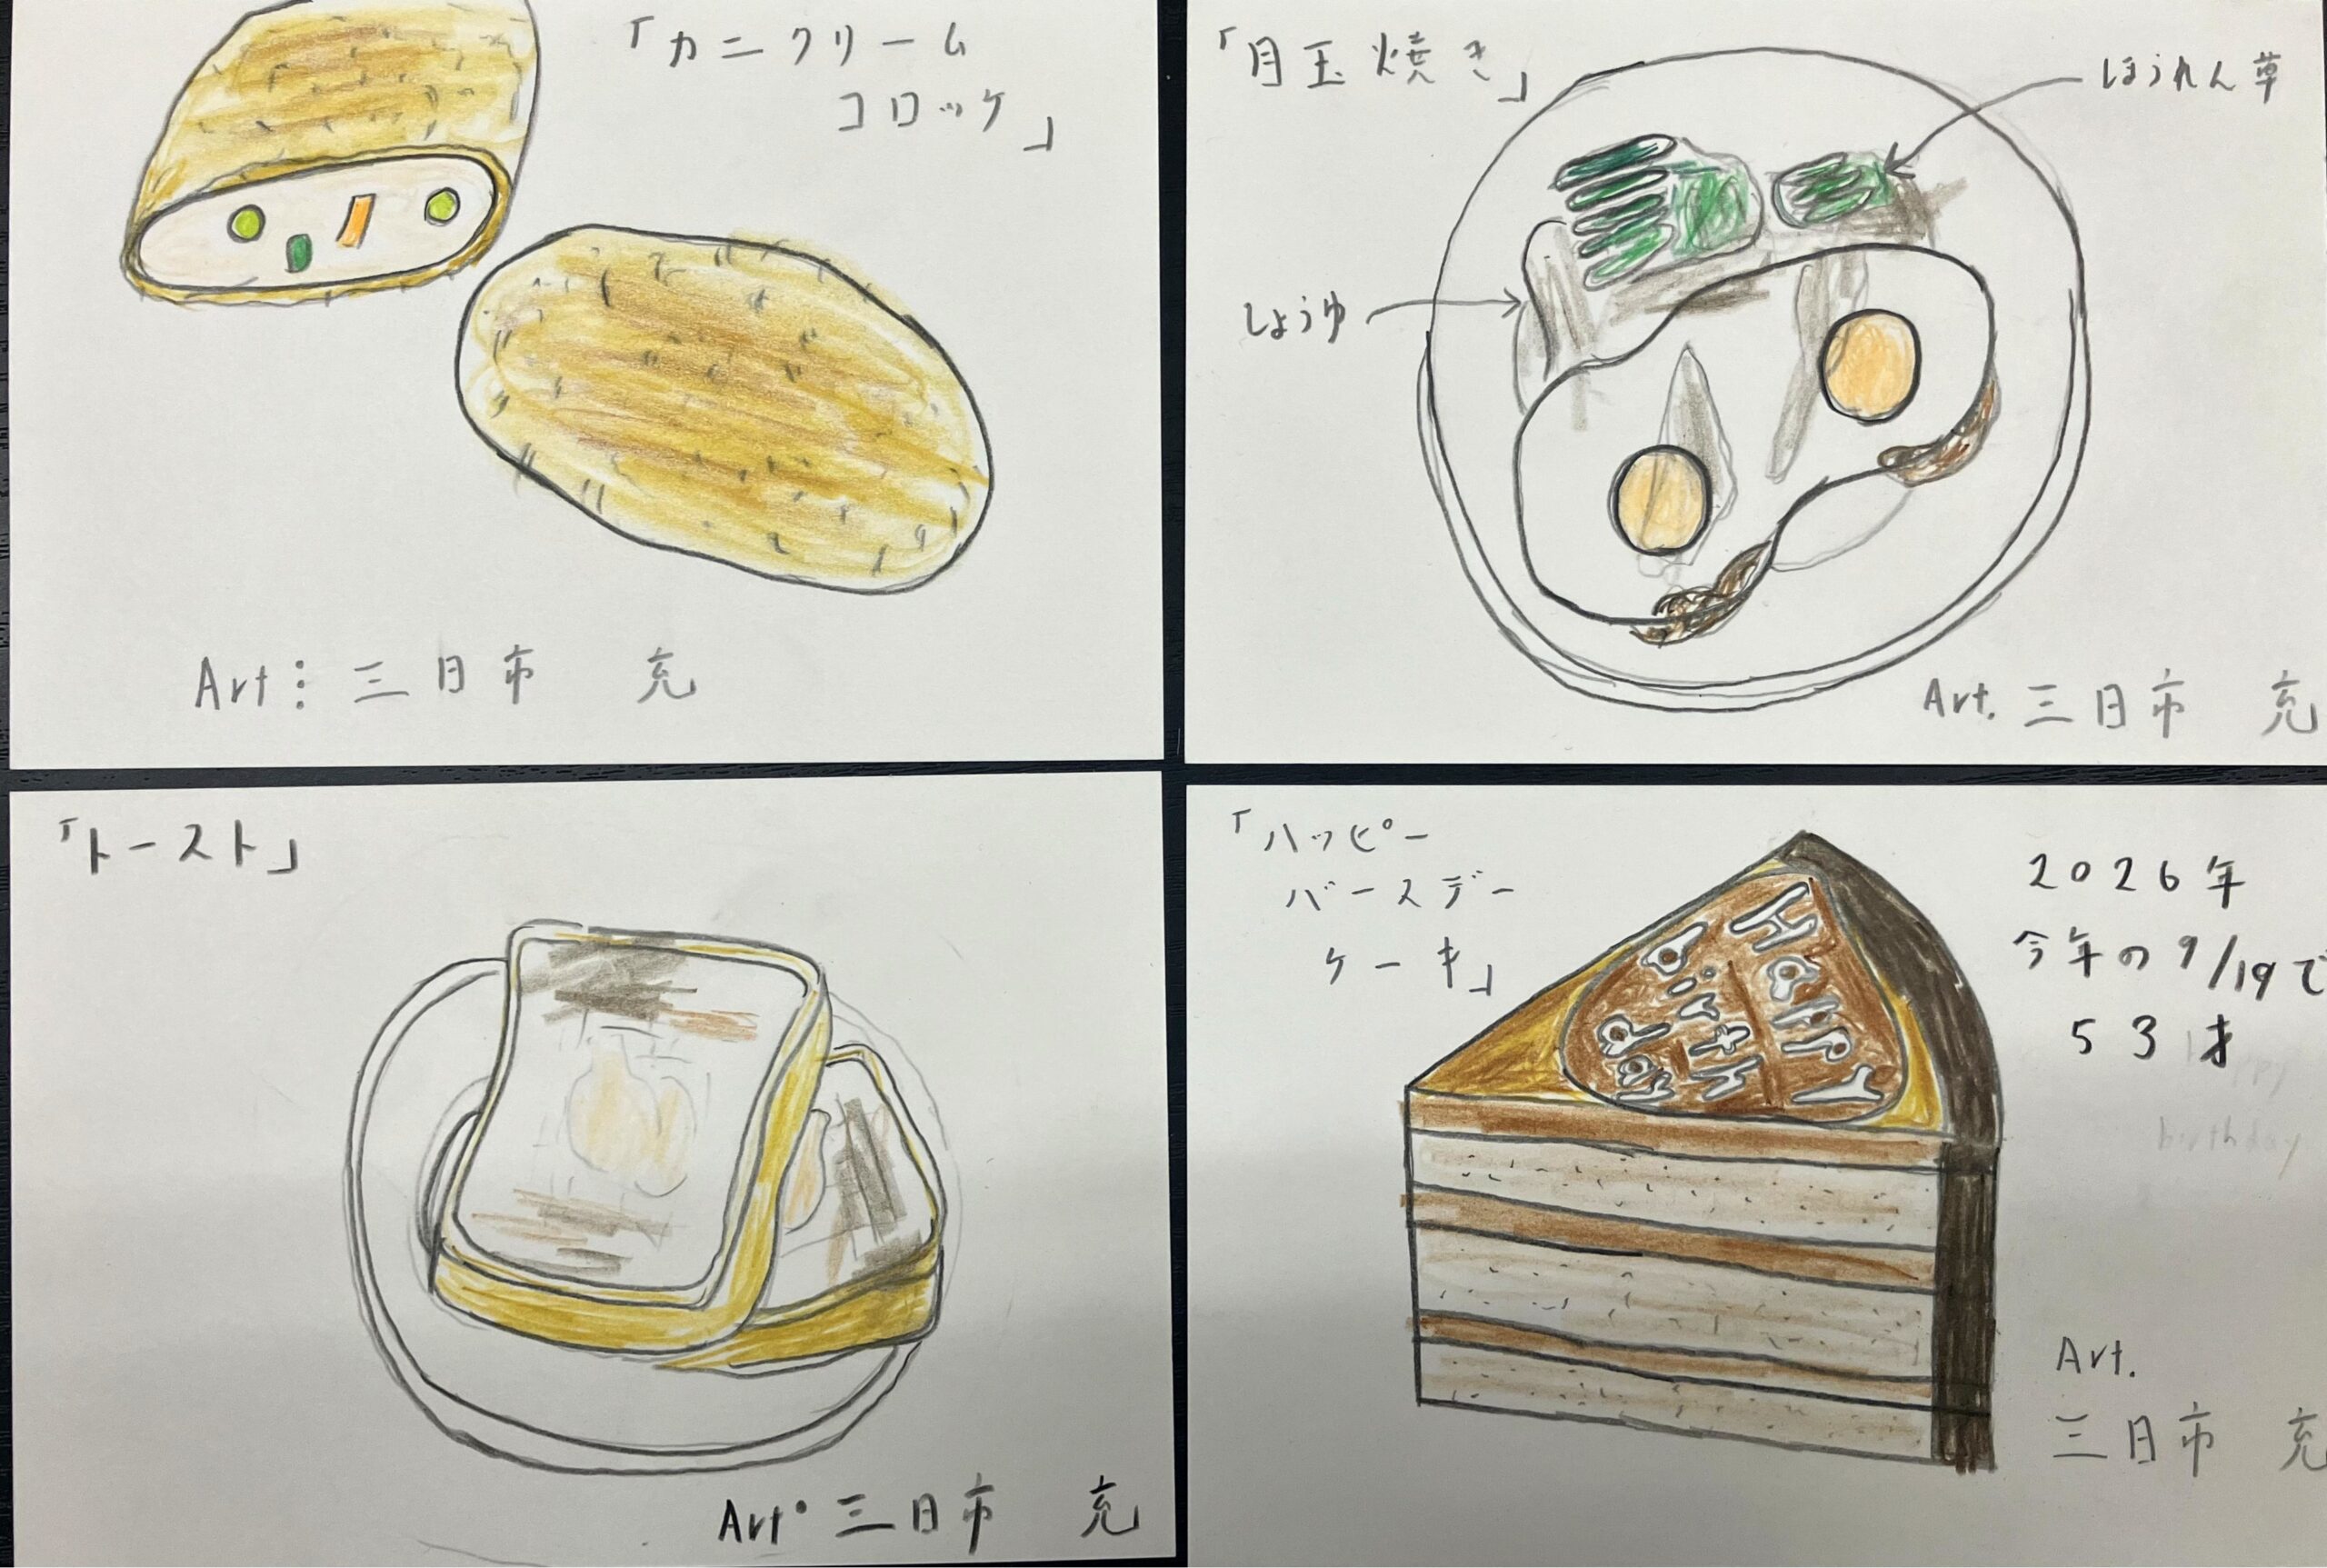 「カニクリーム
コロッケ」
Art: 三日市 充
「目玉焼き」
ほうれん草
しょうゆ
Art. 三日市 充
「トースト」
Art. 三日市 充
「ハッピー
バースデー
ケーキ」
2026年
今年の9/19で
53才
Happy
Birth
day
Happy
birthday
Art.
三日市 充